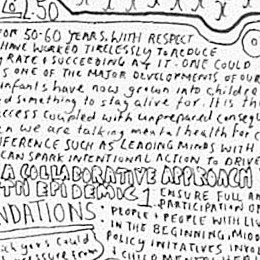 1:50
FOR 50-60 YEARS. WITH RESPECT
HAVE WORKED TIRELESSLY TO REDUCE
RATE & SUCCEEDING AT IT. ONE COULD
S ONE OF THE MAJOR DEVELOPMENTS OF OUR
infants have now grown into children
d something to stay alive for. It is th
ccess coupled with unprepared conseq
n we are talking mental health for c
IFERENCE SUCH AS LEADING MINDS WITH
CAN SPARK INTENTIONAL ACTION TO DRIVE
A COLLABORATIVE APPROACH
TH EPIDEMIC
1 ENSURE FULL AN
PARTICIPATION O
NDATIONS:
PEOPLE & PEOPLE WITH LIV
IN THE BEGINNING, MIDD
POLICY INITATIVES INVOL
CHILD MENTAL HEAL
ch govs could
pressure from